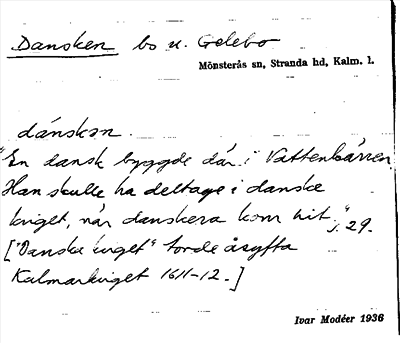 Dansken bo u. Gelebo
Mönsterås sn, Stranda hd, Kalm. l.
dánskən.
"En dansk byggde där i Vattenbärren.
Han skulle ha deltage i danske
kriget, när danskera kom hit". s. 29.
["Danske kriget" torde åsyfta
Kalmarkriget 1611-12.]
Ivar Modéer 1936